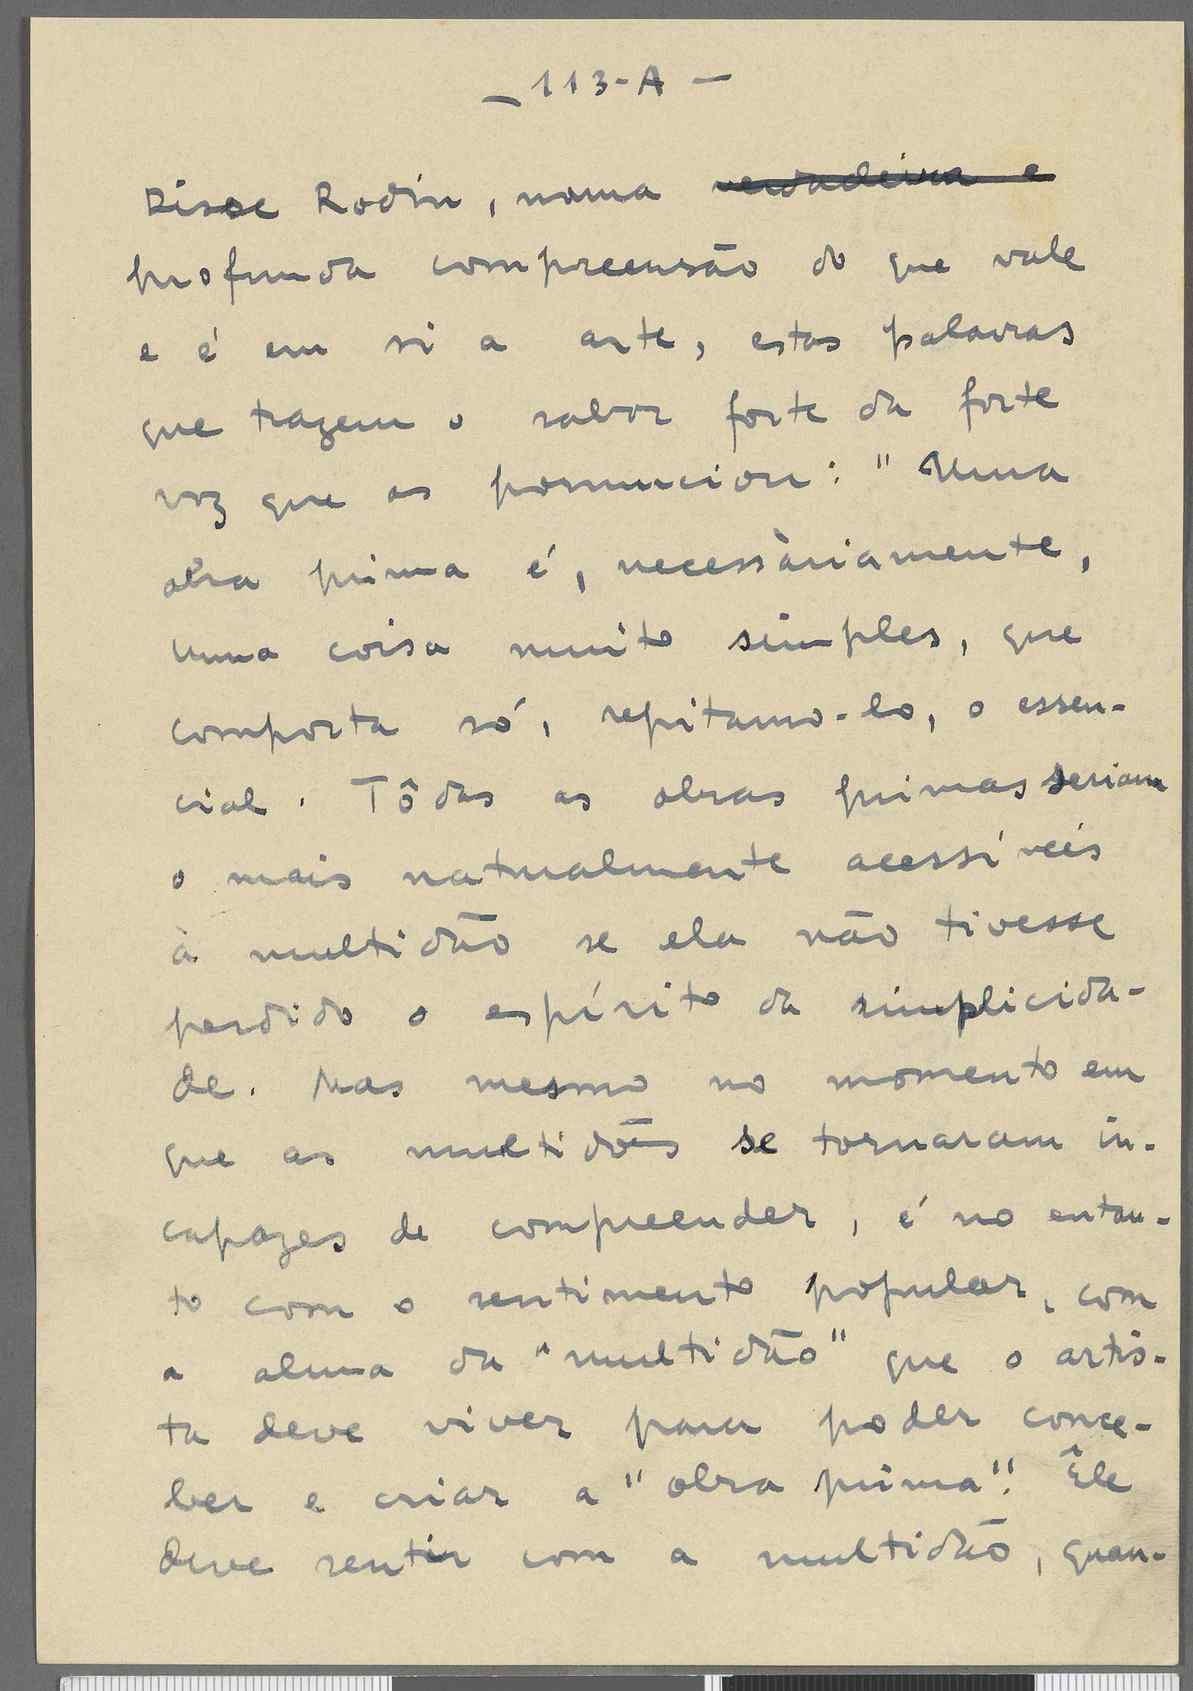 — 113-A —
Disse Rodin, numa verdadeira e
profunda compreensão do que vale
e é em si a arte, estas palavras
que trazem o sabor forte da forte
voz que as pronunciou: "Uma
obra prima é, necessàriamente,
uma coisa muito simples, que
comporta só, repitamo-lo, o essen-
cial. Tôdas as obras primas seriam
o mais naturalmente acessíveis
à multidão se ela não tivesse
perdido o espírito da simplicida-
de. Mas mesmo no momento em
que as multidões se tornaram in-
capazes de compreender, é no entan-
to com o sentimento popular, com
a alma da "multidão" que o artis-
ta deve viver para poder conce-
ber e criar a "obra prima". Êle
deve sentir com a multidão, quan-